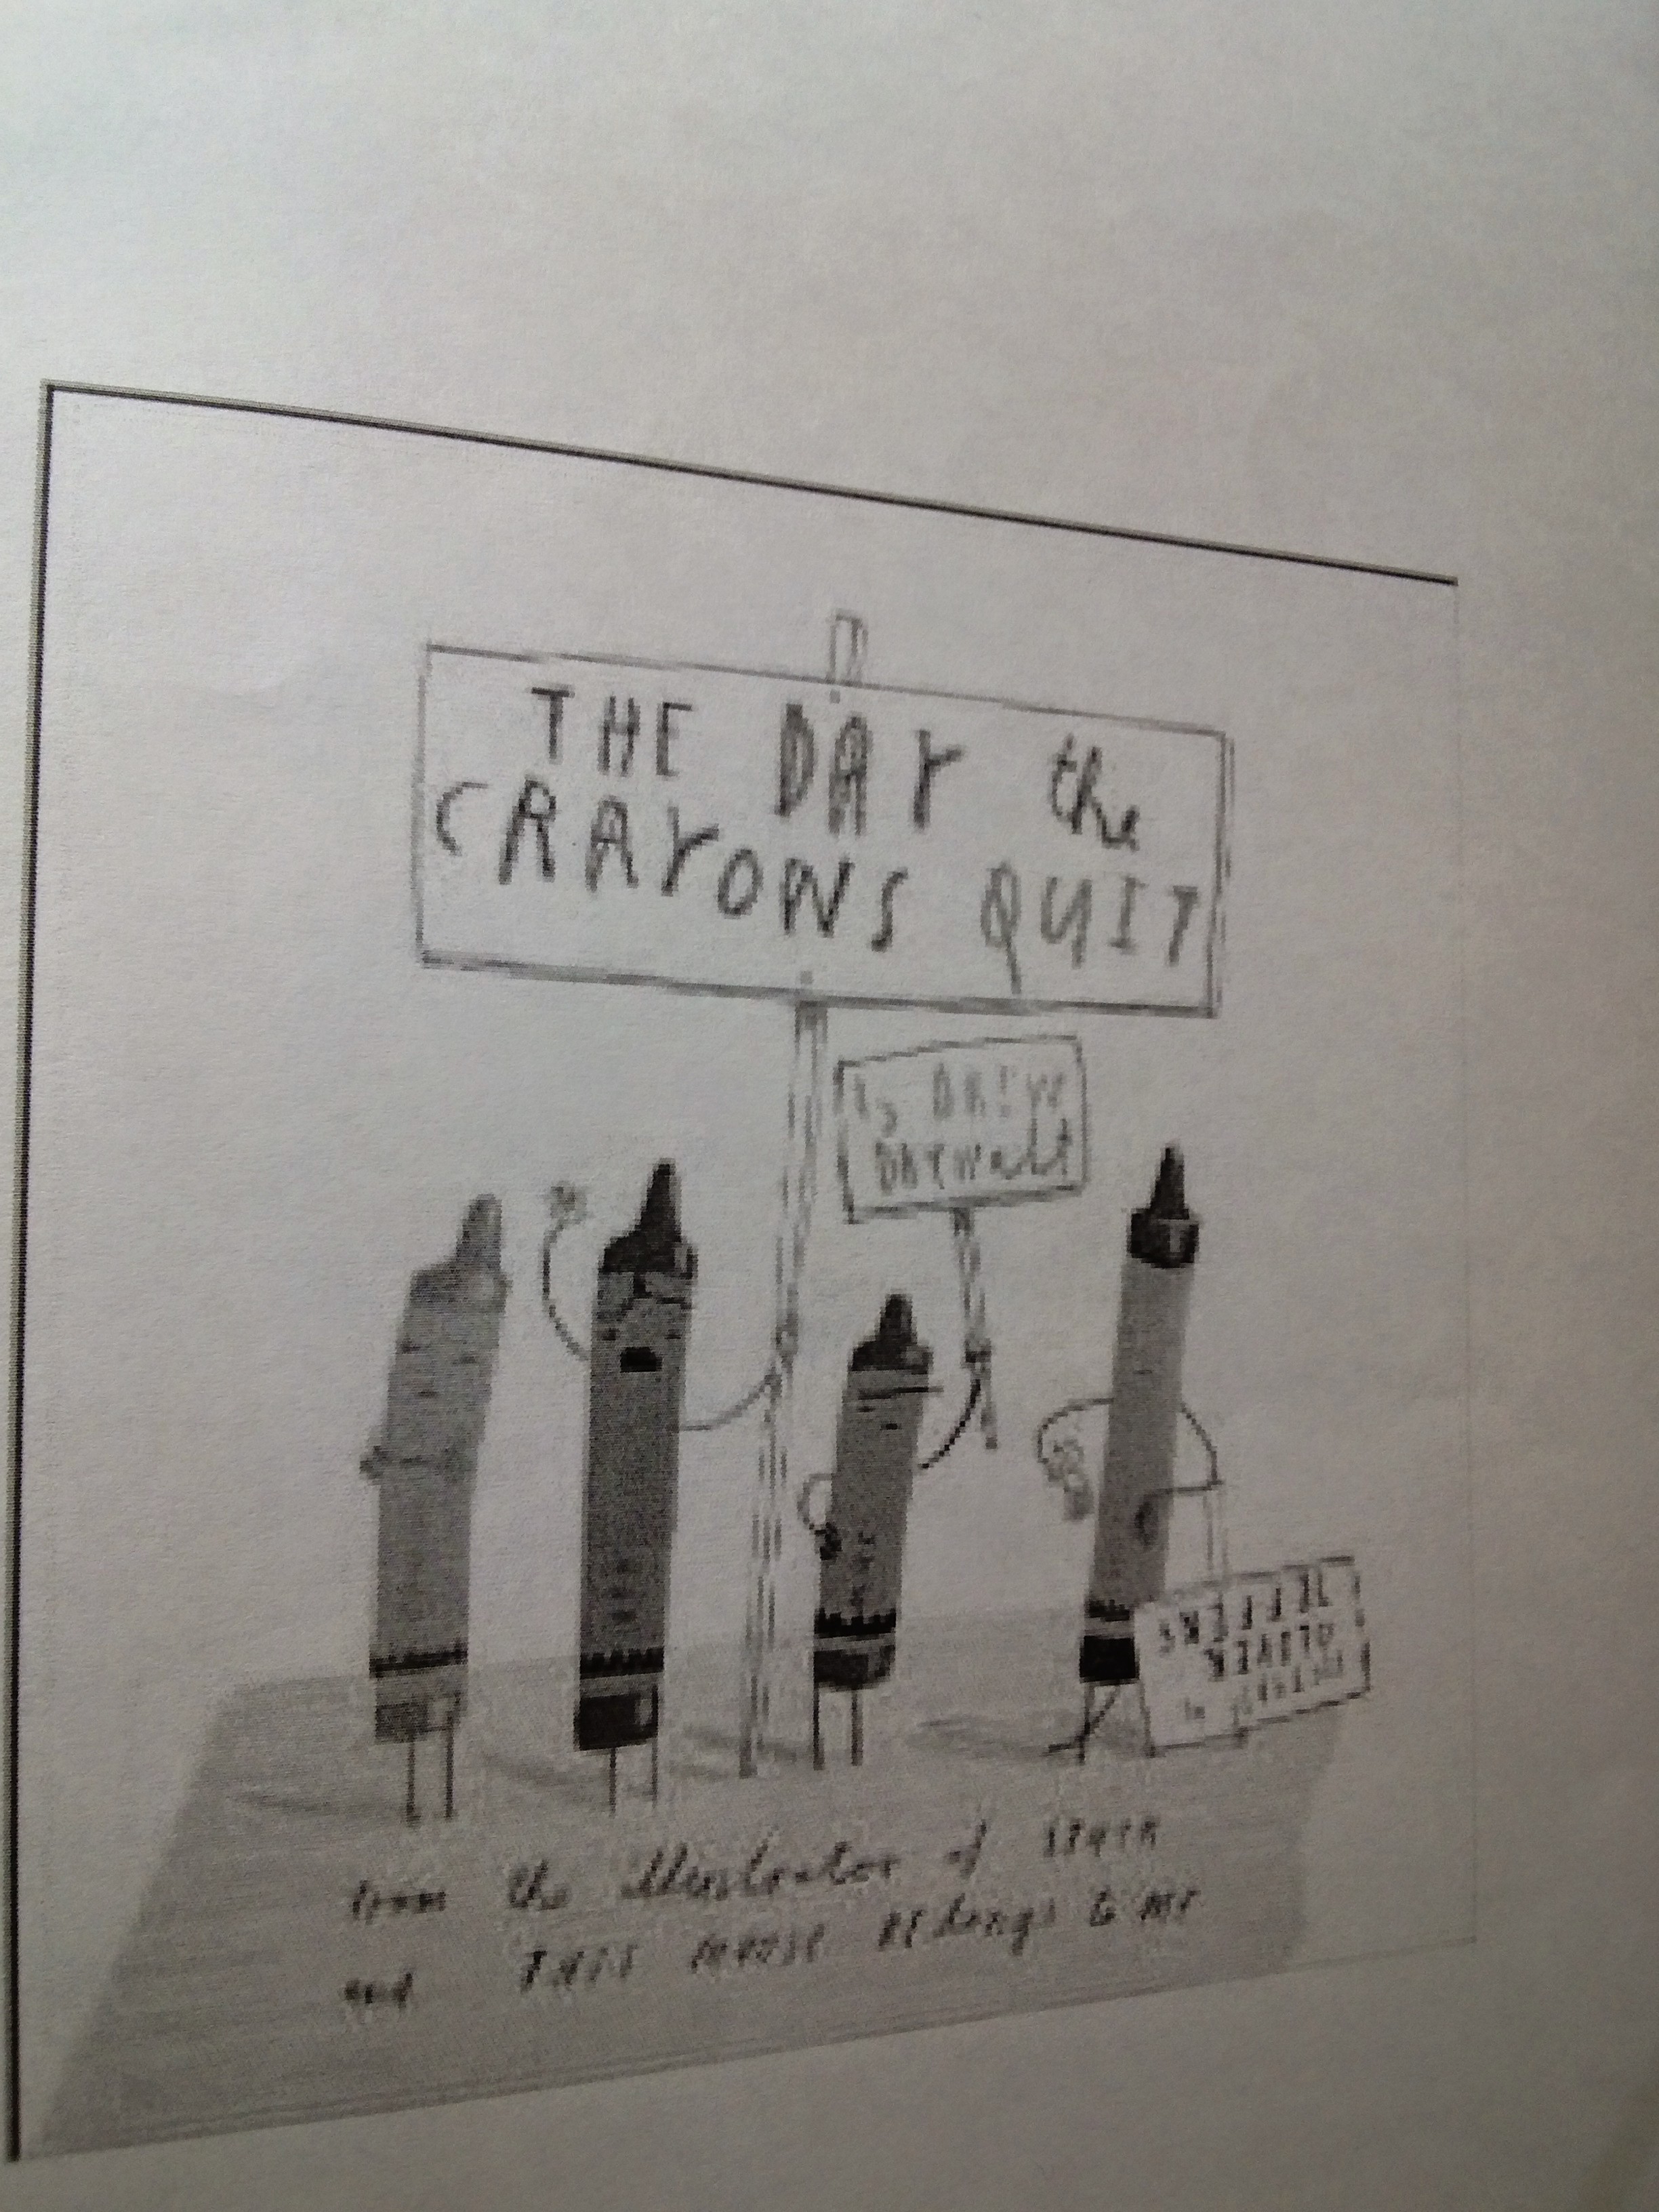 THE DAY the
CRAYONS QUIT
by DREW
DAYWalt
Pictures by
OLIVER
JEFFERS
from the illustrator of STUCK
and THIS MOOSE BElongs to ME